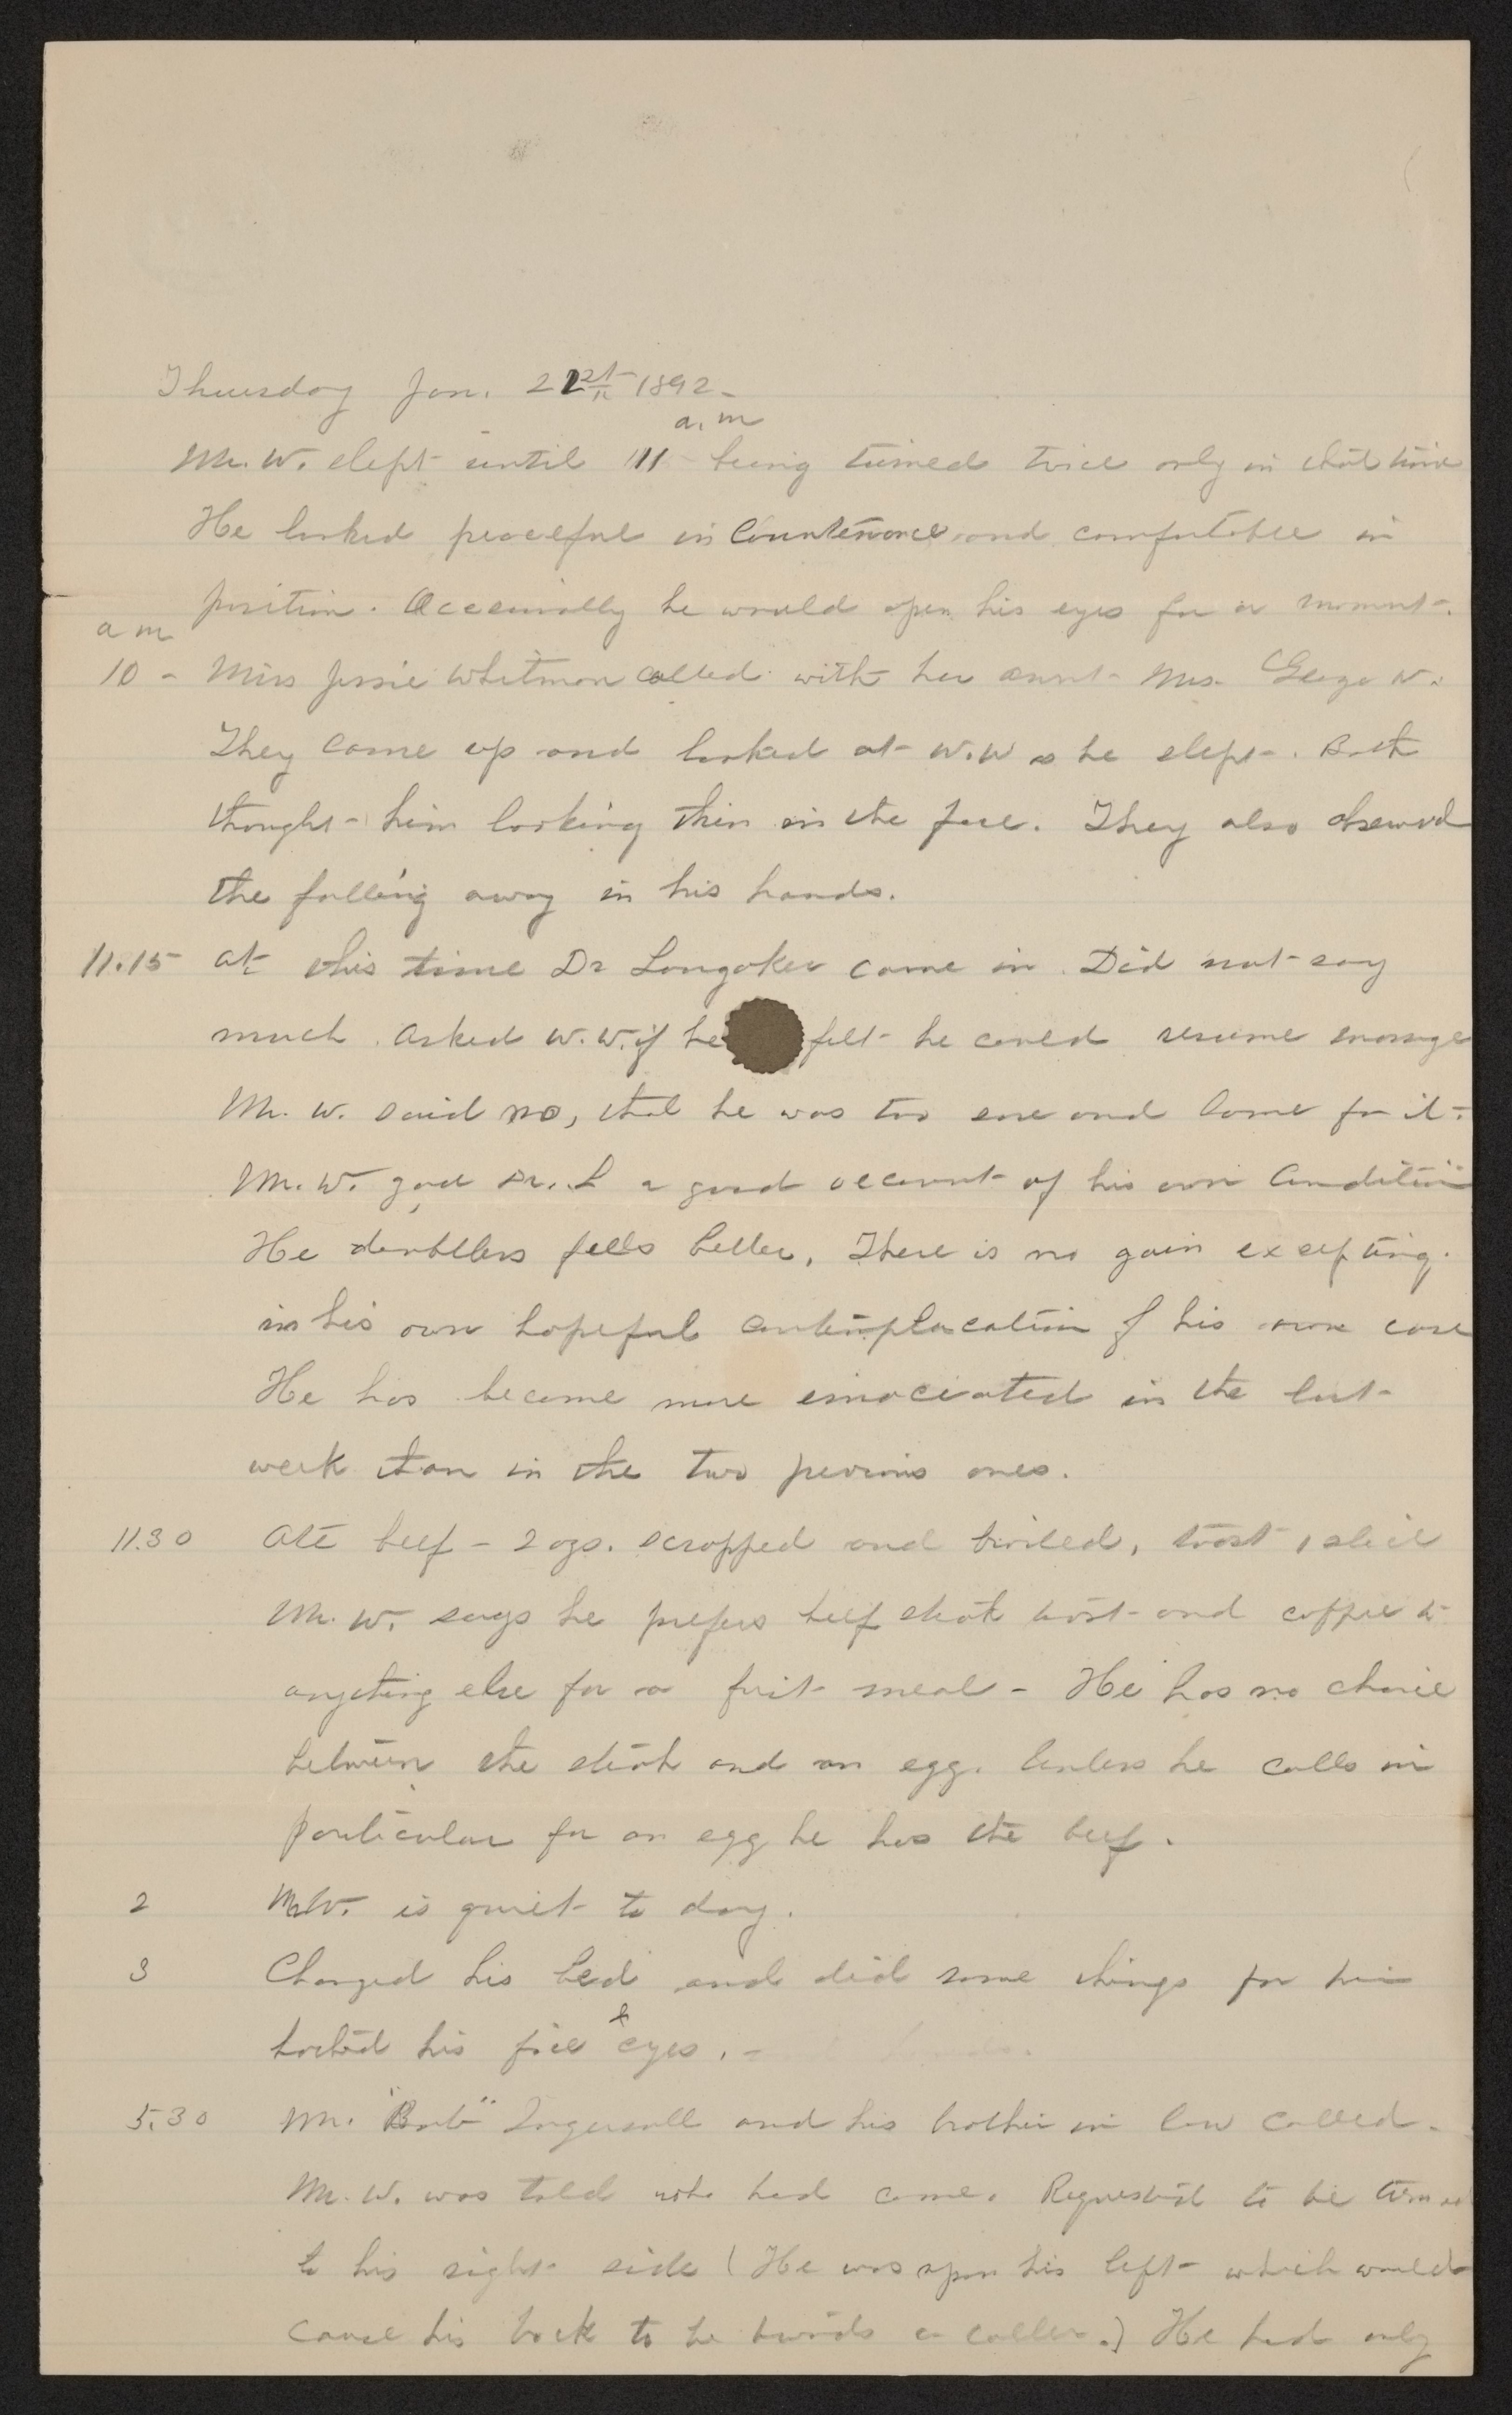 Thursday Jan. 21st 1892 -
a.m
Mr. W. slept until 11 being turned twice only in that time
He looked peaceful in Countenance and comfortable in
position. Occasionally he would open his eyes for a moment.
a m
10 - Miss Jessie Whitman called with her aunt Mrs. George W.
They came up and looked at W.W as he slept. Both
thought him looking thin in the face. They also observed
the falling away in his hands.
11.15 At this time Dr Longaker came in. Did not say
much. Asked W.W. if he felt he could resume massage
Mr. W. said no, that he was too sore and lame for it.
Mr. W. gave Dr. L a good account of his own condition
He doubtless feels better. There is no gain excepting
in his own hopeful of his own case
He has become more emaciated in the last
week than in the two pevious ones.
11.30 Ate beef - 2 ozs. scrapped and broiled, toast 1 slice
Mr. W. says he prefers beef steak toast and coffee to
anything else for a first meal - He has no choice
between the steak and an egg. Unless he calls in
particular for an egg he has the beef.
2 Mr W. is quiet to day.
3 Changed his bed and did some things for him
&
bathed his face eyes. -
5.30 Mr. "Bob" Ingersoll and his brother in law called.
Mr. W. was told who had come. Requested to be turned
to his right side (He was upon his left which would
cause his back to be towards a caller.) He had only